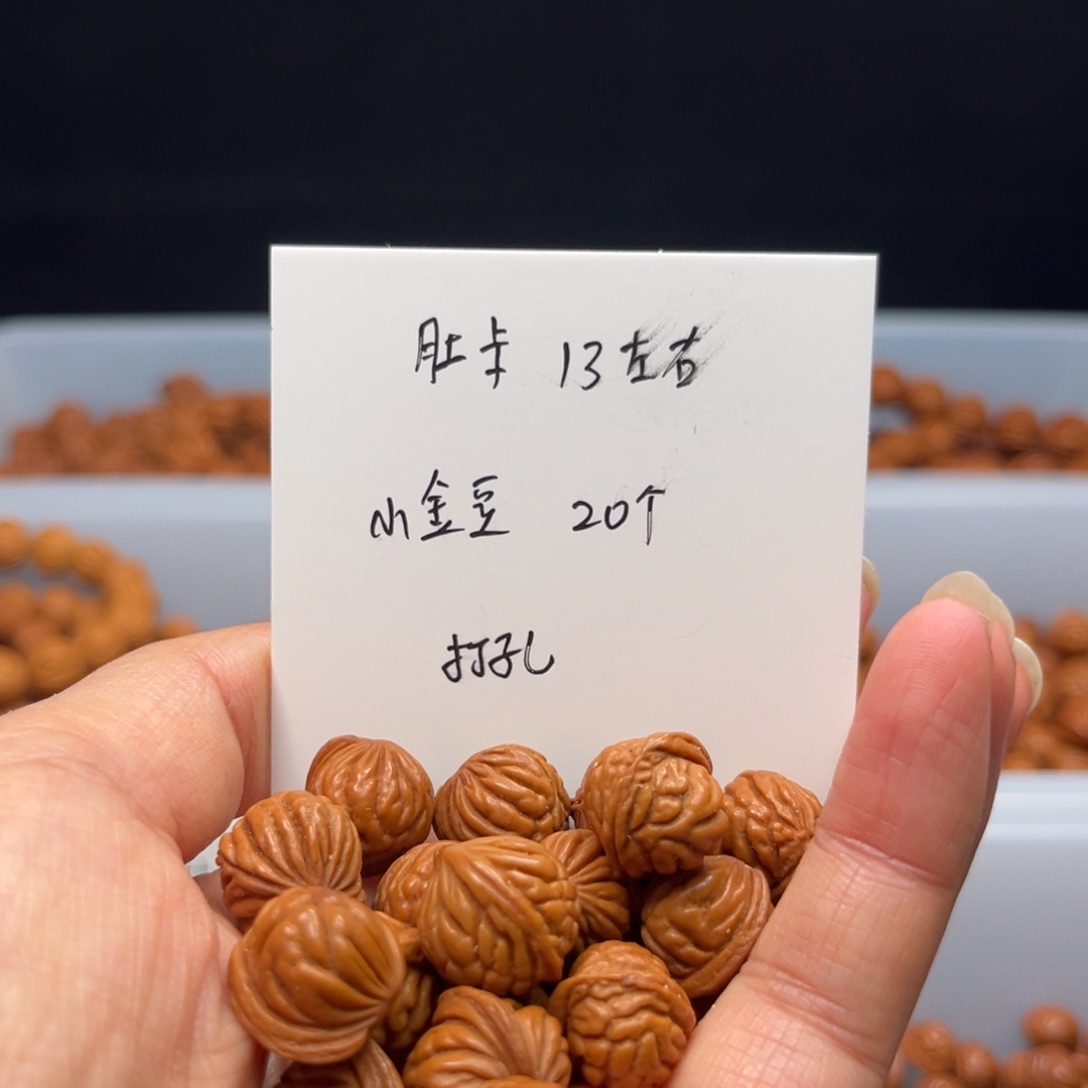 肚卡 13左右
小金豆 20个
打孔